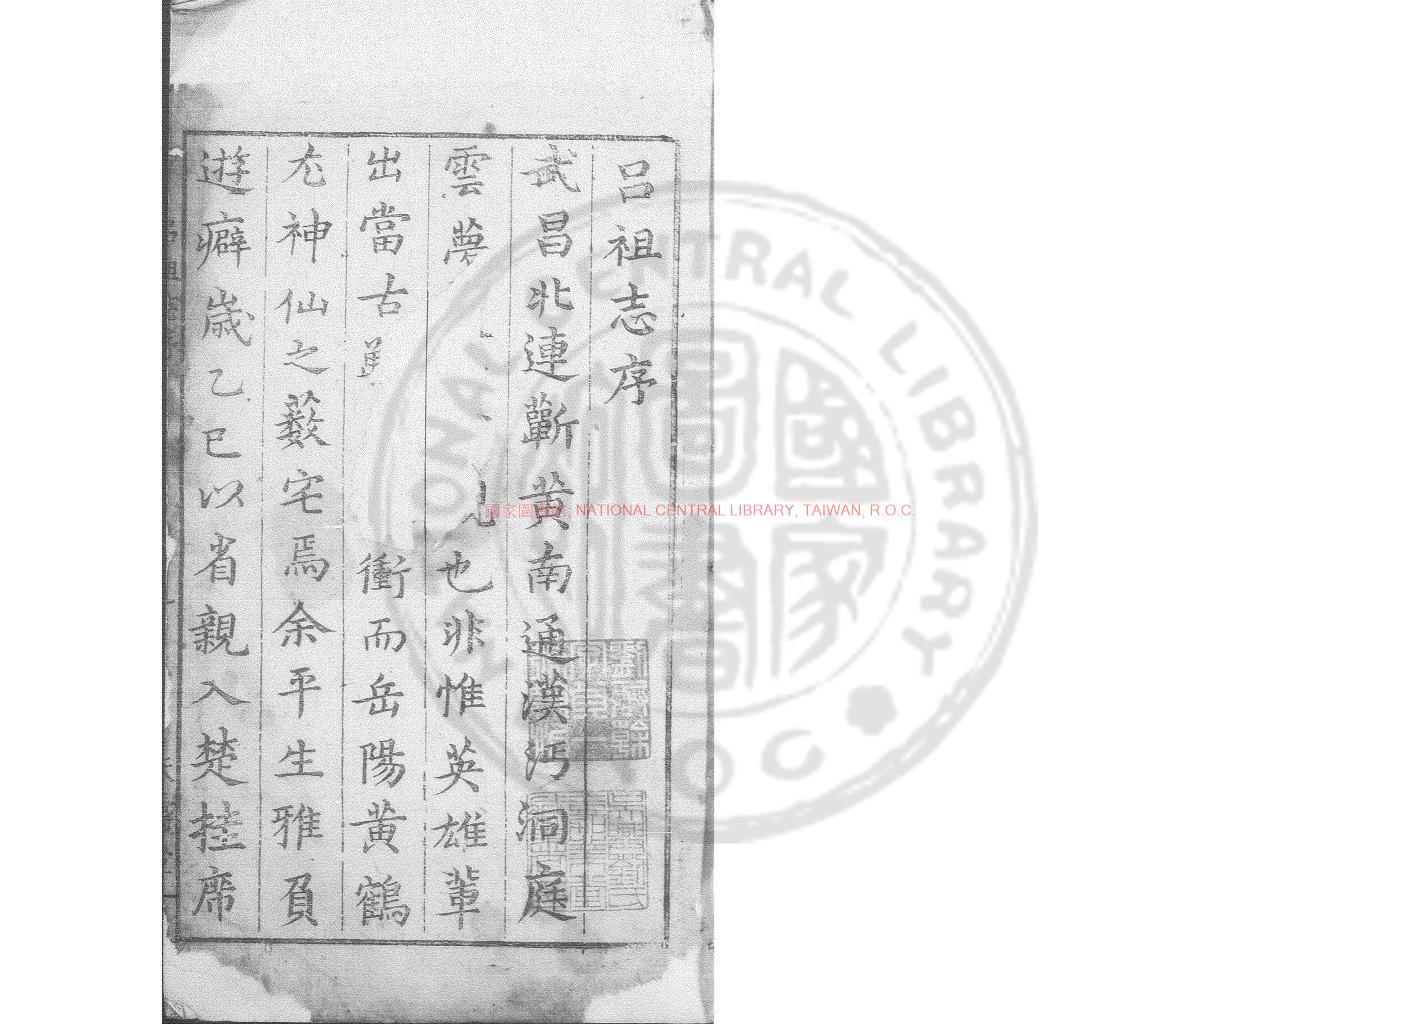 呂祖志序
武昌北連蘄黃南通漢沔洞庭
雲夢見也非惟英雄輩
出當古衝而岳陽黃鶴
尤神仙之藪宅焉余平生雅負
遊癖歲乙巳以省親入楚挂席
國家圖書館, NATIONAL CENTRAL LIBRARY, TAIWAN, R.O.C.
NATIONAL CENTRAL LIBRARY R.O.C.